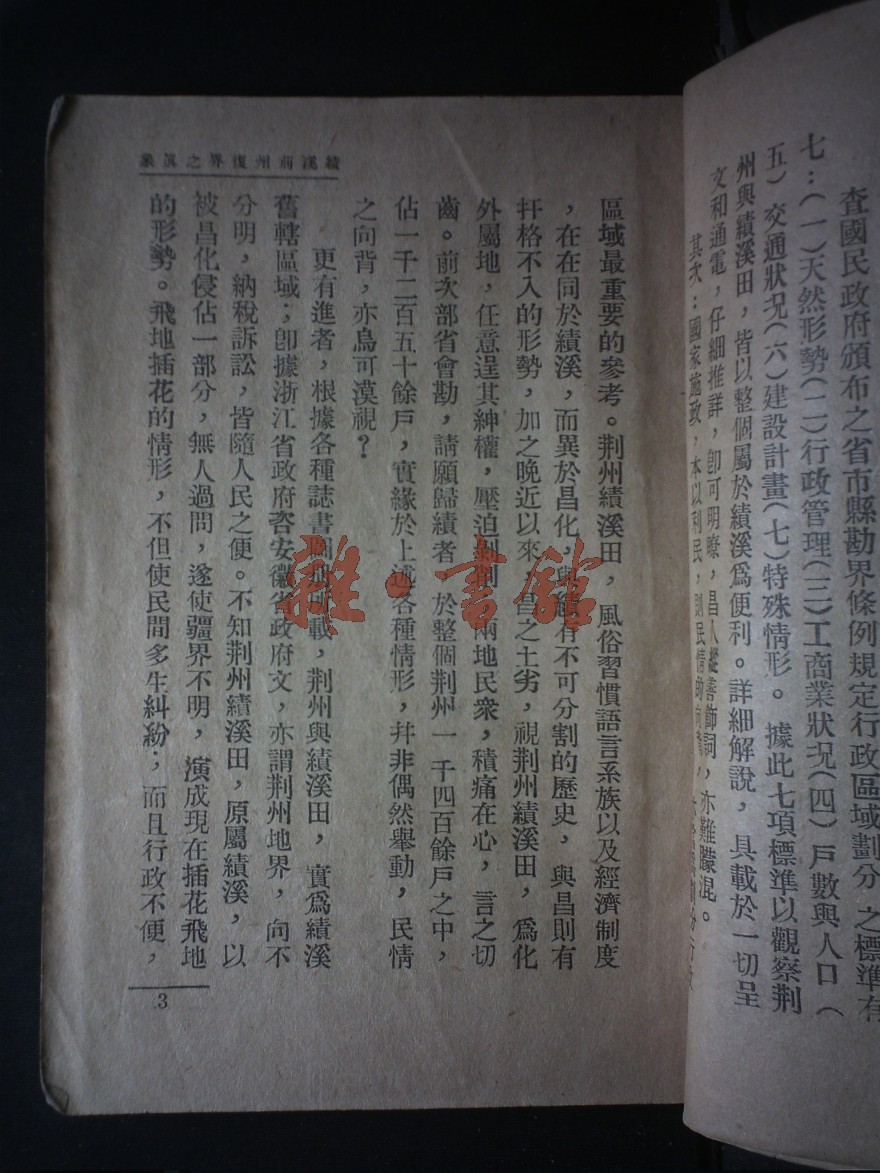 查國民政府頒布之省市縣勘界條例規定行政區域劃分之標準有
七：（一）天然形勢（二）行政管理（三）工商業狀況（四）戶數與人口（
五）交通狀況（六）建設計畫（七）特殊情形。據此七項標準以觀察荆
州與績溪田，皆以整個屬於績溪爲便利。詳細解說，具載於一切呈
文和通電，仔細推詳，卽可明瞭，昌人縱善飾詞，亦難朦混。
其次：國家施政，本以利民，則民情的向
績溪荊州復界之眞象
區域最重要的參考。荆州績溪田，風俗習慣語言系族以及經濟制度
，在在同於績溪，而異於昌化，與績有不可分割的歷史，與昌則有
扞格不入的形勢，加之晚近以來，昌之土劣，視荆州績溪田，爲化
外屬地，任意逞其紳權，壓泊剝削，兩地民衆，積痛在心，言之切
齒。前次部省會勘，請願歸績者，於整個荆州一千四百餘戶之中，
佔一千二百五十餘戶，實緣於上述各種情形，幷非偶然舉動，民情
之向背，亦烏可漠視？
更有進者，根據各種誌書圖 載，荆州與績溪田，實爲績溪
舊轄區域；卽據浙江省政府咨安徽省政府文，亦謂荆州地界，向不
分明，納稅訴訟，皆隨人民之便。不知荆州績溪田，原屬績溪，以
被昌化侵佔一部分，無人過問，遂使疆界不明，演成現在插花飛地
的形勢。飛地插花的情形，不但使民間多生糾紛；而且行政不便，
3
雜·書館